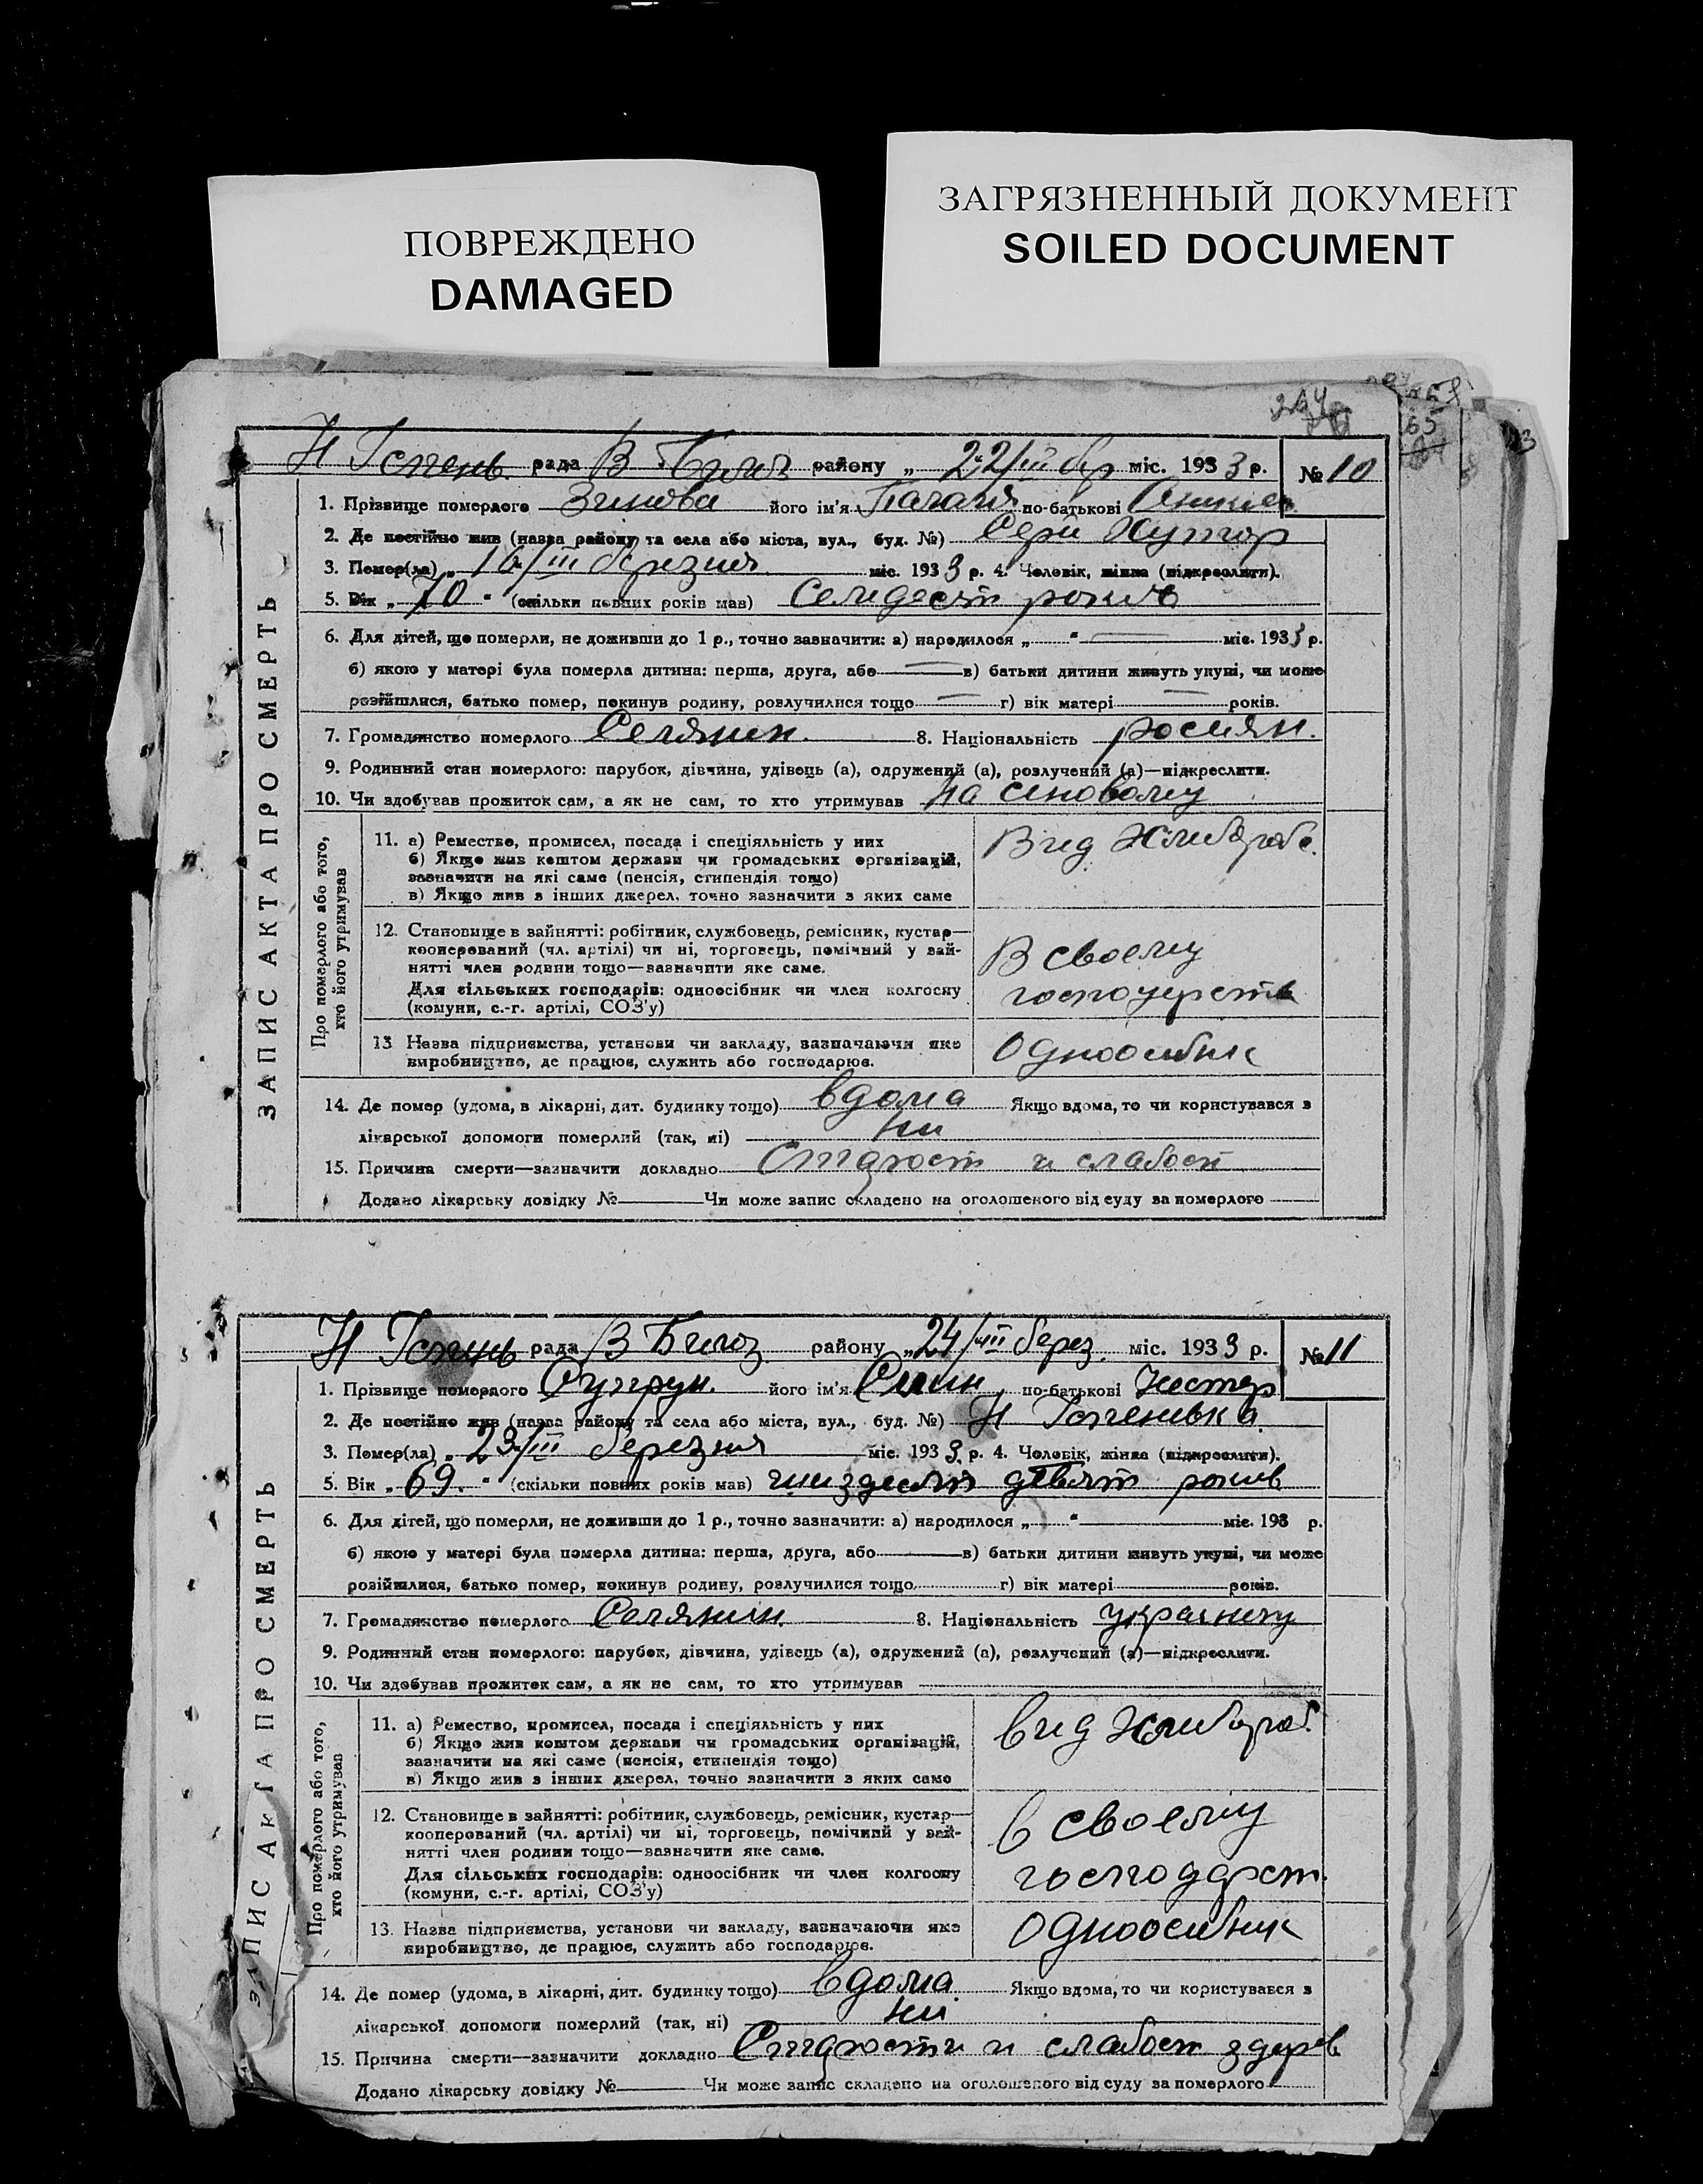 ПОВРЕЖДЕНО
DAMAGED
ЗАГРЯЗНЕННЫЙ ДОКУМЕНТ
SOILED DOCUMENT
ЗАПИС АКТА ПРО СМЕРТЬ
Н Успень рада В Билоз району „ 22/III бер міс. 1933 р. № 10
1. Прізвище померлого Зинова його ім'я по-батькові
2. Де постійно жив (назва району та села або міста, вул., буд. №) Хутор
3. Помер(ла) „ 16/III березня міс. 1933 р. 4. Чоловік, жінка (підкреслити).
5. Вік „ 70 “ (скільки повних років мав) Семдесят рокив
6. Для дітей, що померли, не доживши до 1 р., точно зазначити: а) народилося „ “ міс. 1933 р.
б) якою у матері була померла дитина: перша, друга, або в) батьки дитини живуть укупі, чи може
розійшлися, батько помер, покинув родину, розлучилися тощо г) вік матері років.
7. Громадянство померлого Селянин. 8. Національність росиян.
9. Родинний стан померлого: парубок, дівчина, удівець (а), одружений (а), розлучений (а)—підкреслити.
10. Чи здобував прожиток сам, а як не сам, то хто утримував на
Про померлого або того,
хто його утримував
11. а) Ремество, промисел, посада і спеціяльність у них
б) Якщо жив коштом держави чи громадських організацій,
зазначити на які саме (пенсія, стипендія тощо)
в) Якщо жив з інших джерел, точно зазначити з яких саме
Вид хлибороб.
12. Становище в зайнятті: робітник, службовець, ремісник, кустар—
кооперований (чл. артілі) чи ні, торговець, помічний у зай-
нятті член родини тощо—зазначити яке саме.
Для сільських господарів: одноосібник чи член колгоспу
(комуни, с.-г. артілі, СОЗ'у)
В своему
господарств
13 Назва підприємства, установи чи закладу, зазначаючи яке
виробництво, де працює, служить або господарює.
Одноосибник
14. Де помер (удома, в лікарні, дит. будинку тощо) вдома Якщо вдома, то чи користувався з
лікарської допомоги померлий (так, ні) ни
15. Причина смерти—зазначити докладно Старост и слабост
Додано лікарську довідку № Чи може запис складено на оголошеного від суду за померлого
ЗАПИС АКТА ПРО СМЕРТЬ
Н Успень рада В Билоз району „ 24/III берез. міс. 1933 р. № 11
1. Прізвище померлого Супрун. його ім'я по-батькові Нестер
2. Де постійно жив (назва району та села або міста, вул., буд. №) Н Успенивка
3. Помер(ла) „ 23/III березня міс. 1933 р. 4. Чоловік, жінка (підкреслити).
5. Вік „ 69. “ (скільки повних років мав) шиздесят девят рокив
6. Для дітей, що померли, не доживши до 1 р., точно зазначити: а) народилося „ “ міс. 193 р.
б) якою у матері була померла дитина: перша, друга, або в) батьки дитини живуть укупі, чи може
розійшлися, батько помер, покинув родину, розлучилися тощо г) вік матері років.
7. Громадянство померлого Селянин. 8. Національність
9. Родинний стан померлого: парубок, дівчина, удівець (а), одружений (а), розлучений (а)—підкреслити.
10. Чи здобував прожиток сам, а як не сам, то хто утримував
Про померлого або того,
хто його утримував
11. а) Ремество, промисел, посада і спеціяльність у них
б) Якщо жив коштом держави чи громадських організацій,
зазначити на які саме (пенсія, стипендія тощо)
в) Якщо жив з інших джерел, точно зазначити з яких саме
вид хлибороб.
12. Становище в зайнятті: робітник, службовець, ремісник, кустар—
кооперований (чл. артілі) чи ні, торговець, помічний у зай-
нятті член родини тощо—зазначити яке саме.
Для сільських господарів: одноосібник чи член колгоспу
(комуни, с.-г. артілі, СОЗ'у)
в своему
господарст.
13. Назва підприємства, установи чи закладу, зазначаючи яке
виробництво, де працює, служить або господарює.
Одноосибник
14. Де помер (удома, в лікарні, дит. будинку тощо) вдома. Якщо вдома, то чи користувався з
лікарської допомоги померлий (так, ні) ни
15. Причина смерти—зазначити докладно Старости и слабост здоров
Додано лікарську довідку № Чи може запис складено на оголошеного від суду за померлого